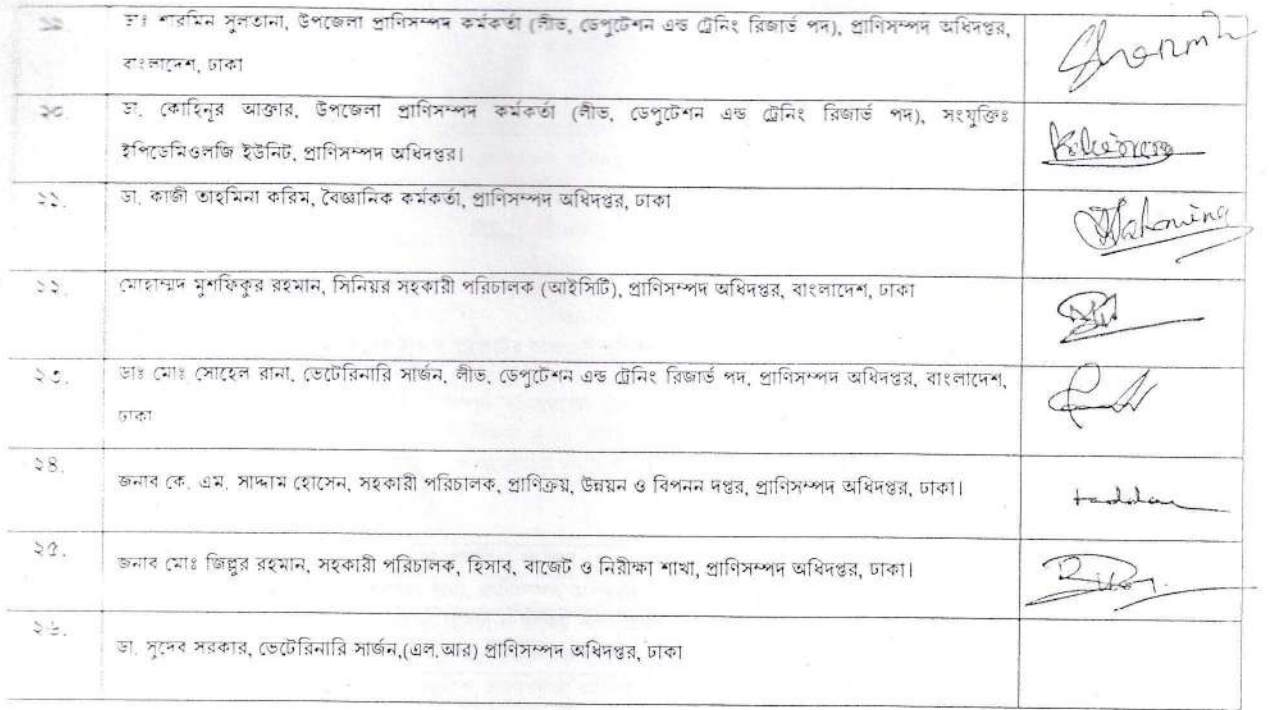 ১৯. ডাঃ শারমিন সুলতানা, উপজেলা প্রাণিসম্পদ কর্মকর্তা (লীভ, ডেপুটেশন এন্ড ট্রেনিং রিজার্ভ পদ), প্রাণিসম্পদ অধিদপ্তর,
বাংলাদেশ, ঢাকা
Sharmin
২০. ডা. কোহিনুর আক্তার, উপজেলা প্রাণিসম্পদ কর্মকর্তা (লীভ, ডেপুটেশন এন্ড ট্রেনিং রিজার্ভ পদ), সংযুক্তিঃ
ইপিডেমিওলজি ইউনিট, প্রাণিসম্পদ অধিদপ্তর।
২১. ডা. কাজী তাহমিনা করিম, বৈজ্ঞানিক কর্মকর্তা, প্রাণিসম্পদ অধিদপ্তর, ঢাকা
Tahmina
২২. মোহাম্মদ মুশফিকুর রহমান, সিনিয়র সহকারী পরিচালক (আইসিটি), প্রাণিসম্পদ অধিদপ্তর, বাংলাদেশ, ঢাকা
২৩. ডাঃ মোঃ সোহেল রানা, ভেটেরিনারি সার্জন, লীভ, ডেপুটেশন এন্ড ট্রেনিং রিজার্ভ পদ, প্রাণিসম্পদ অধিদপ্তর, বাংলাদেশ,
ঢাকা
২৪. জনাব কে. এম. সাদ্দাম হোসেন, সহকারী পরিচালক, প্রাণিক্রয়, উন্নয়ন ও বিপনন দপ্তর, প্রাণিসম্পদ অধিদপ্তর, ঢাকা।
২৫. জনাব মোঃ জিল্লুর রহমান, সহকারী পরিচালক, হিসাব, বাজেট ও নিরীক্ষা শাখা, প্রাণিসম্পদ অধিদপ্তর, ঢাকা।
২৬. ডা. সুদেব সরকার, ভেটেরিনারি সার্জন,(এল.আর) প্রাণিসম্পদ অধিদপ্তর, ঢাকা